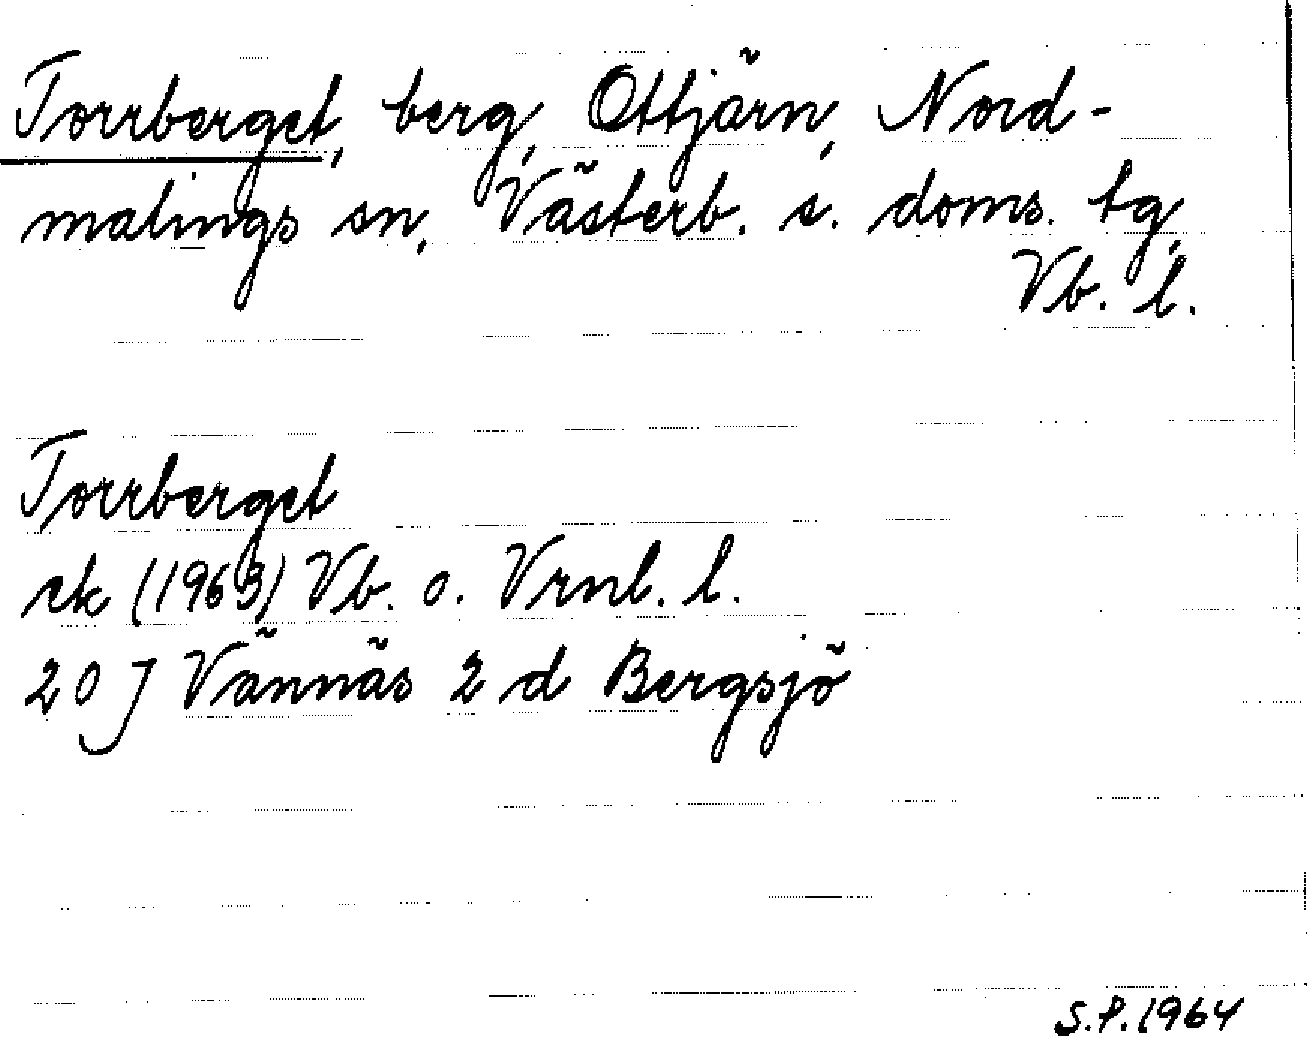 Torrberget, berg, Ottjärn, Nord-
malings sn, Västerb. s. doms. tg,
Vb. l.
Torrberget
rk (1963) Vb. o. Vrnl. l.
20 J Vännäs 2 d Bergsjö
S.P. 1964